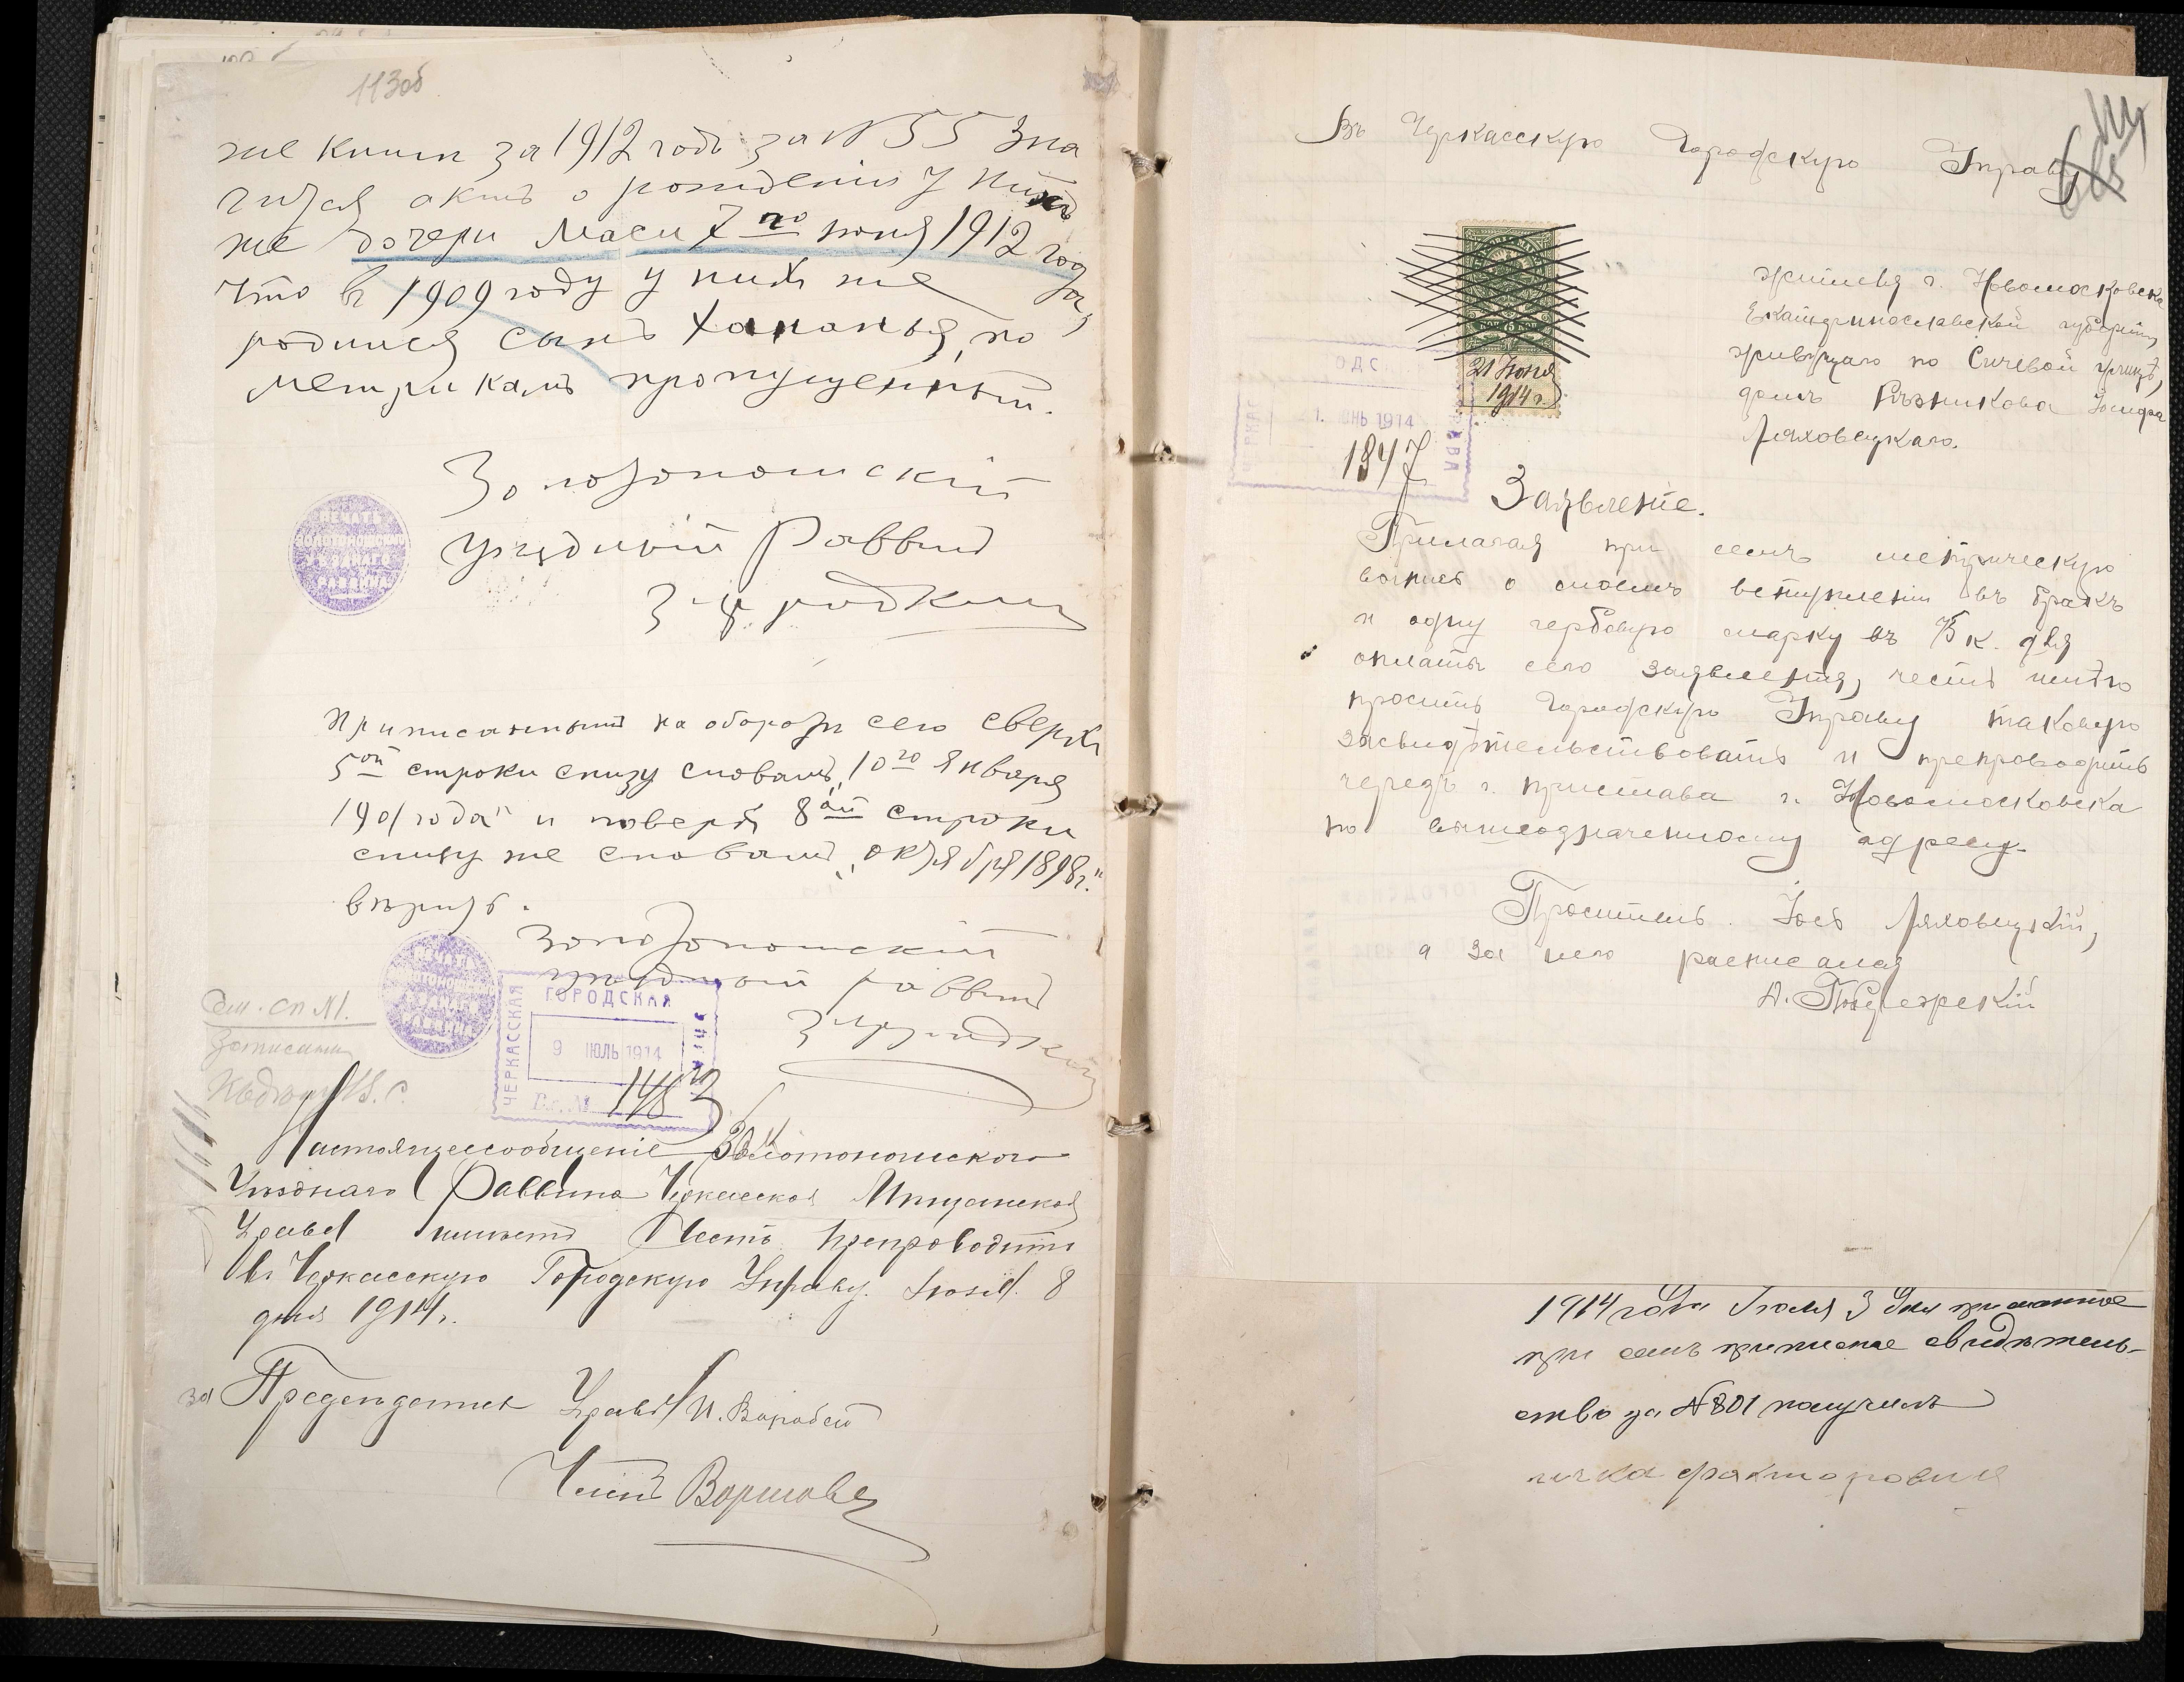 113об
же книги за 1912 годъ за № 55 зна
чится актъ о рожденіи у нихъ
же дочери Маси 7го іюня 1912 года,
что въ 1909 году у нихъ же
родился сынъ Хананья, по
метрикамъ пропущенный.
Золотоношскій
уѣздный Раввинъ
Приписанный на оборотѣ сего сверхъ
5ой строки снизу словамъ „10го января
1901 года" и поверхъ 8ой строки
снизу же словамъ „октября 1898 г."
вѣрить.
Золотоношскій
уѣздный раввинъ
ЧЕРКАССКАЯ
ГОРОДСКАЯ
УПРАВА
9 ІЮЛЬ 1914
Вх. №
Настоящее сообщеніе Золотоношскаго
Уѣзднаго Раввина Черкасская Мѣщанская
Управа имѣетъ честь препроводить
въ Черкасскую Городскую Управу. Іюля 8
дня 1914 г.
за Предсѣдателя Управы И. Воробей
Членъ
Въ Черкасскую Городскую Управу
жителя г. Новомосковска
Екатеринославской губерніи,
живущаго по Сичевой улицѣ,
домъ Рѣзникова
Ляховецкаго.
75 КОП
21 Іюня
1914 г.
1847
Заявленіе.
Прилагая при семъ метрическую
выпись о моемъ вступленіи въ бракъ
и одну гербовую марку въ 75 к. для
оплаты сего заявленія, честь имѣю
просить Городскую Управу таковую
засвидѣтельствовать и препроводить
черезъ г. пристава г. Новомосковска
по вышеозначенному адресу.
Проситель Іось Ляховецкій,
а за него расписался
А.
1914 года Іюля 3 дня
при семъ приписное свидѣтель-
ство за № 801 получилъ